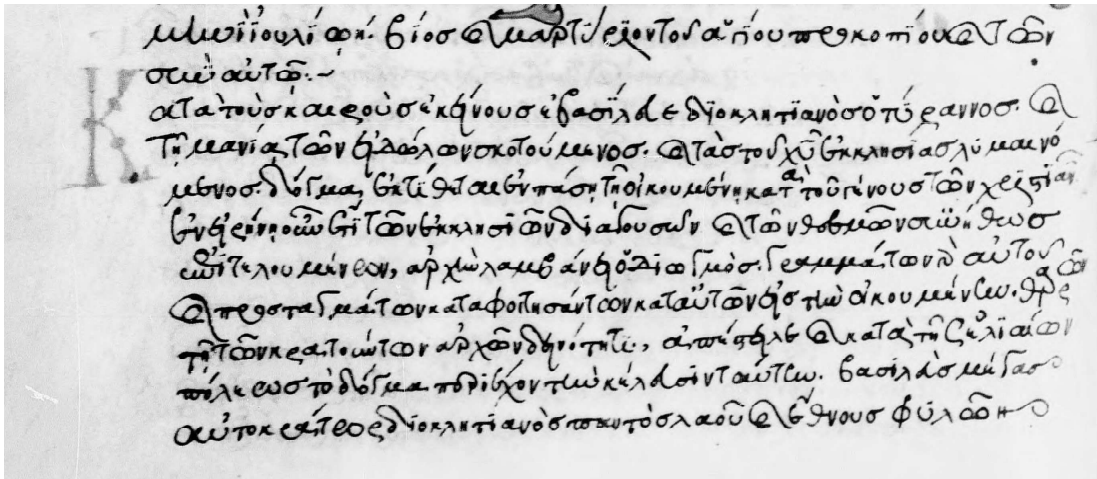 μηνὶ ἰουλίῳ η. βίος καὶ μαρτύριον τοῦ ἁγίου προκοπίου καὶ τῶν
σὺν αὐτῷ.
Κατὰ τοὺς καιροὺς ἐκείνους ἐβασίλευε διοκλητιανὸς ὁ τύραννος. καὶ
τῇ μανίᾳ τῶν εἰδώλων σκοτούμενος. καὶ τὰς τοῦ χυ ἐκκλησίας λυμαινό
μενος. δόγμα ἐκτίθεται ἐν πάσῃ τῇ οἰκουμένῃ κατὰ τοῦ γένους τῶν χριστιανῶν
ἐν εἰρήνῃ οὖν ἔτι τῶν ἐκκλησιῶν διαγουσῶν καὶ τῶν θεσμῶν συνήθως
ἐπιτελουμένων, ἀρχὴν λαμβάνει ὁ διωγμός. γραμμάτων αὐτοῦ
καὶ προσταγμάτων καταφοιτησάντων κατ αὐτῶν εἰς τὴν οἰκουμένην.
τῇ τῶν κρατούντων ἀρχῶν δεινότητι, ἀπέστειλε καὶ κατὰ τῆς αἰλιαίων
πόλεως τὸ δόγμα περιέχον τὴν κέλευσιν ταύτην. βασιλεὺς μέγας
αὐτοκράτωρ διοκλητιανὸς παντὸς λαοῦ καὶ ἔθνους φύλων